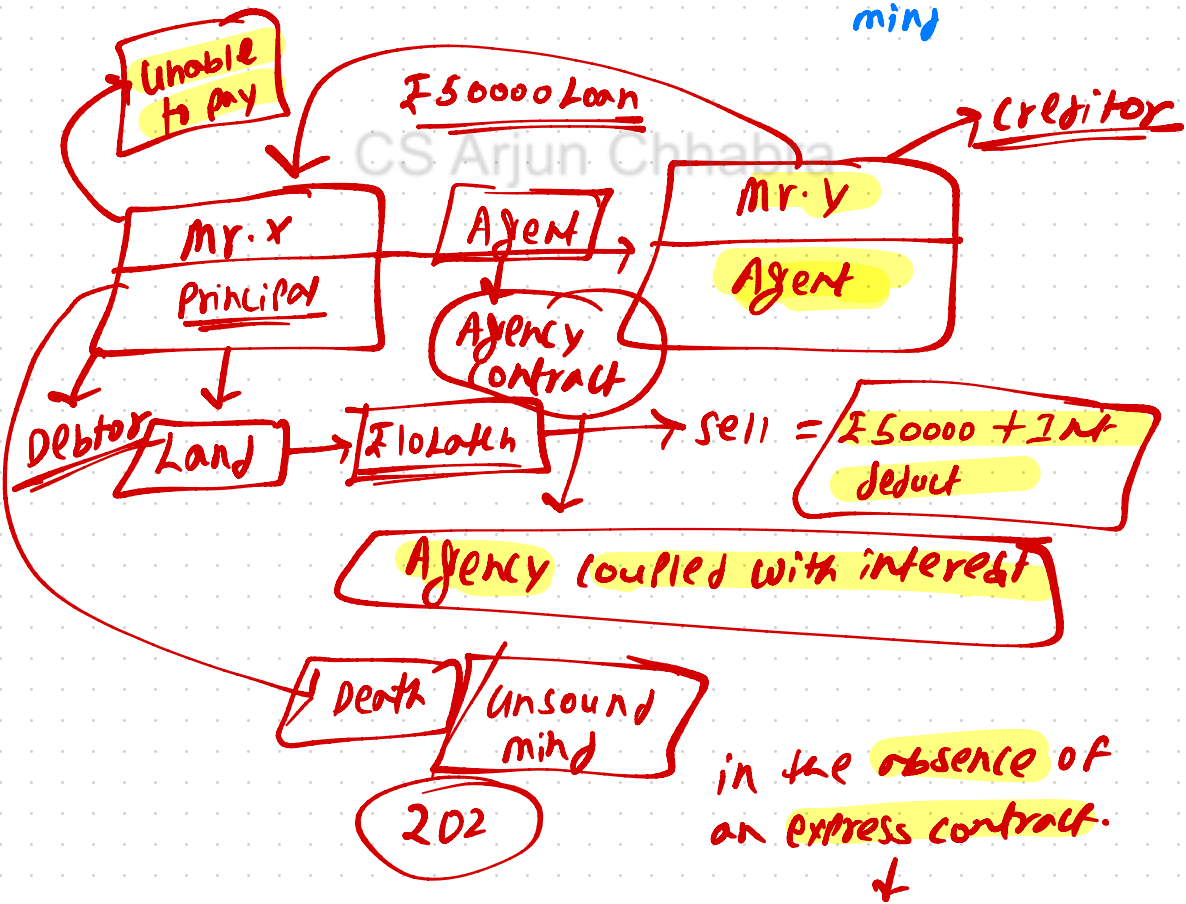 mind
Unable
to pay
₹50000 Loan
Creditor
CS Arjun Chhabra
Mr. X
Agent
Mr. Y
Principal
Agent
Agency
contract
Debtor
Land
₹10 Lakh
sell = ₹50000 + Int
deduct
Agency coupled with interest
Death
Unsound
mind
202
in the absence of
an express contract.